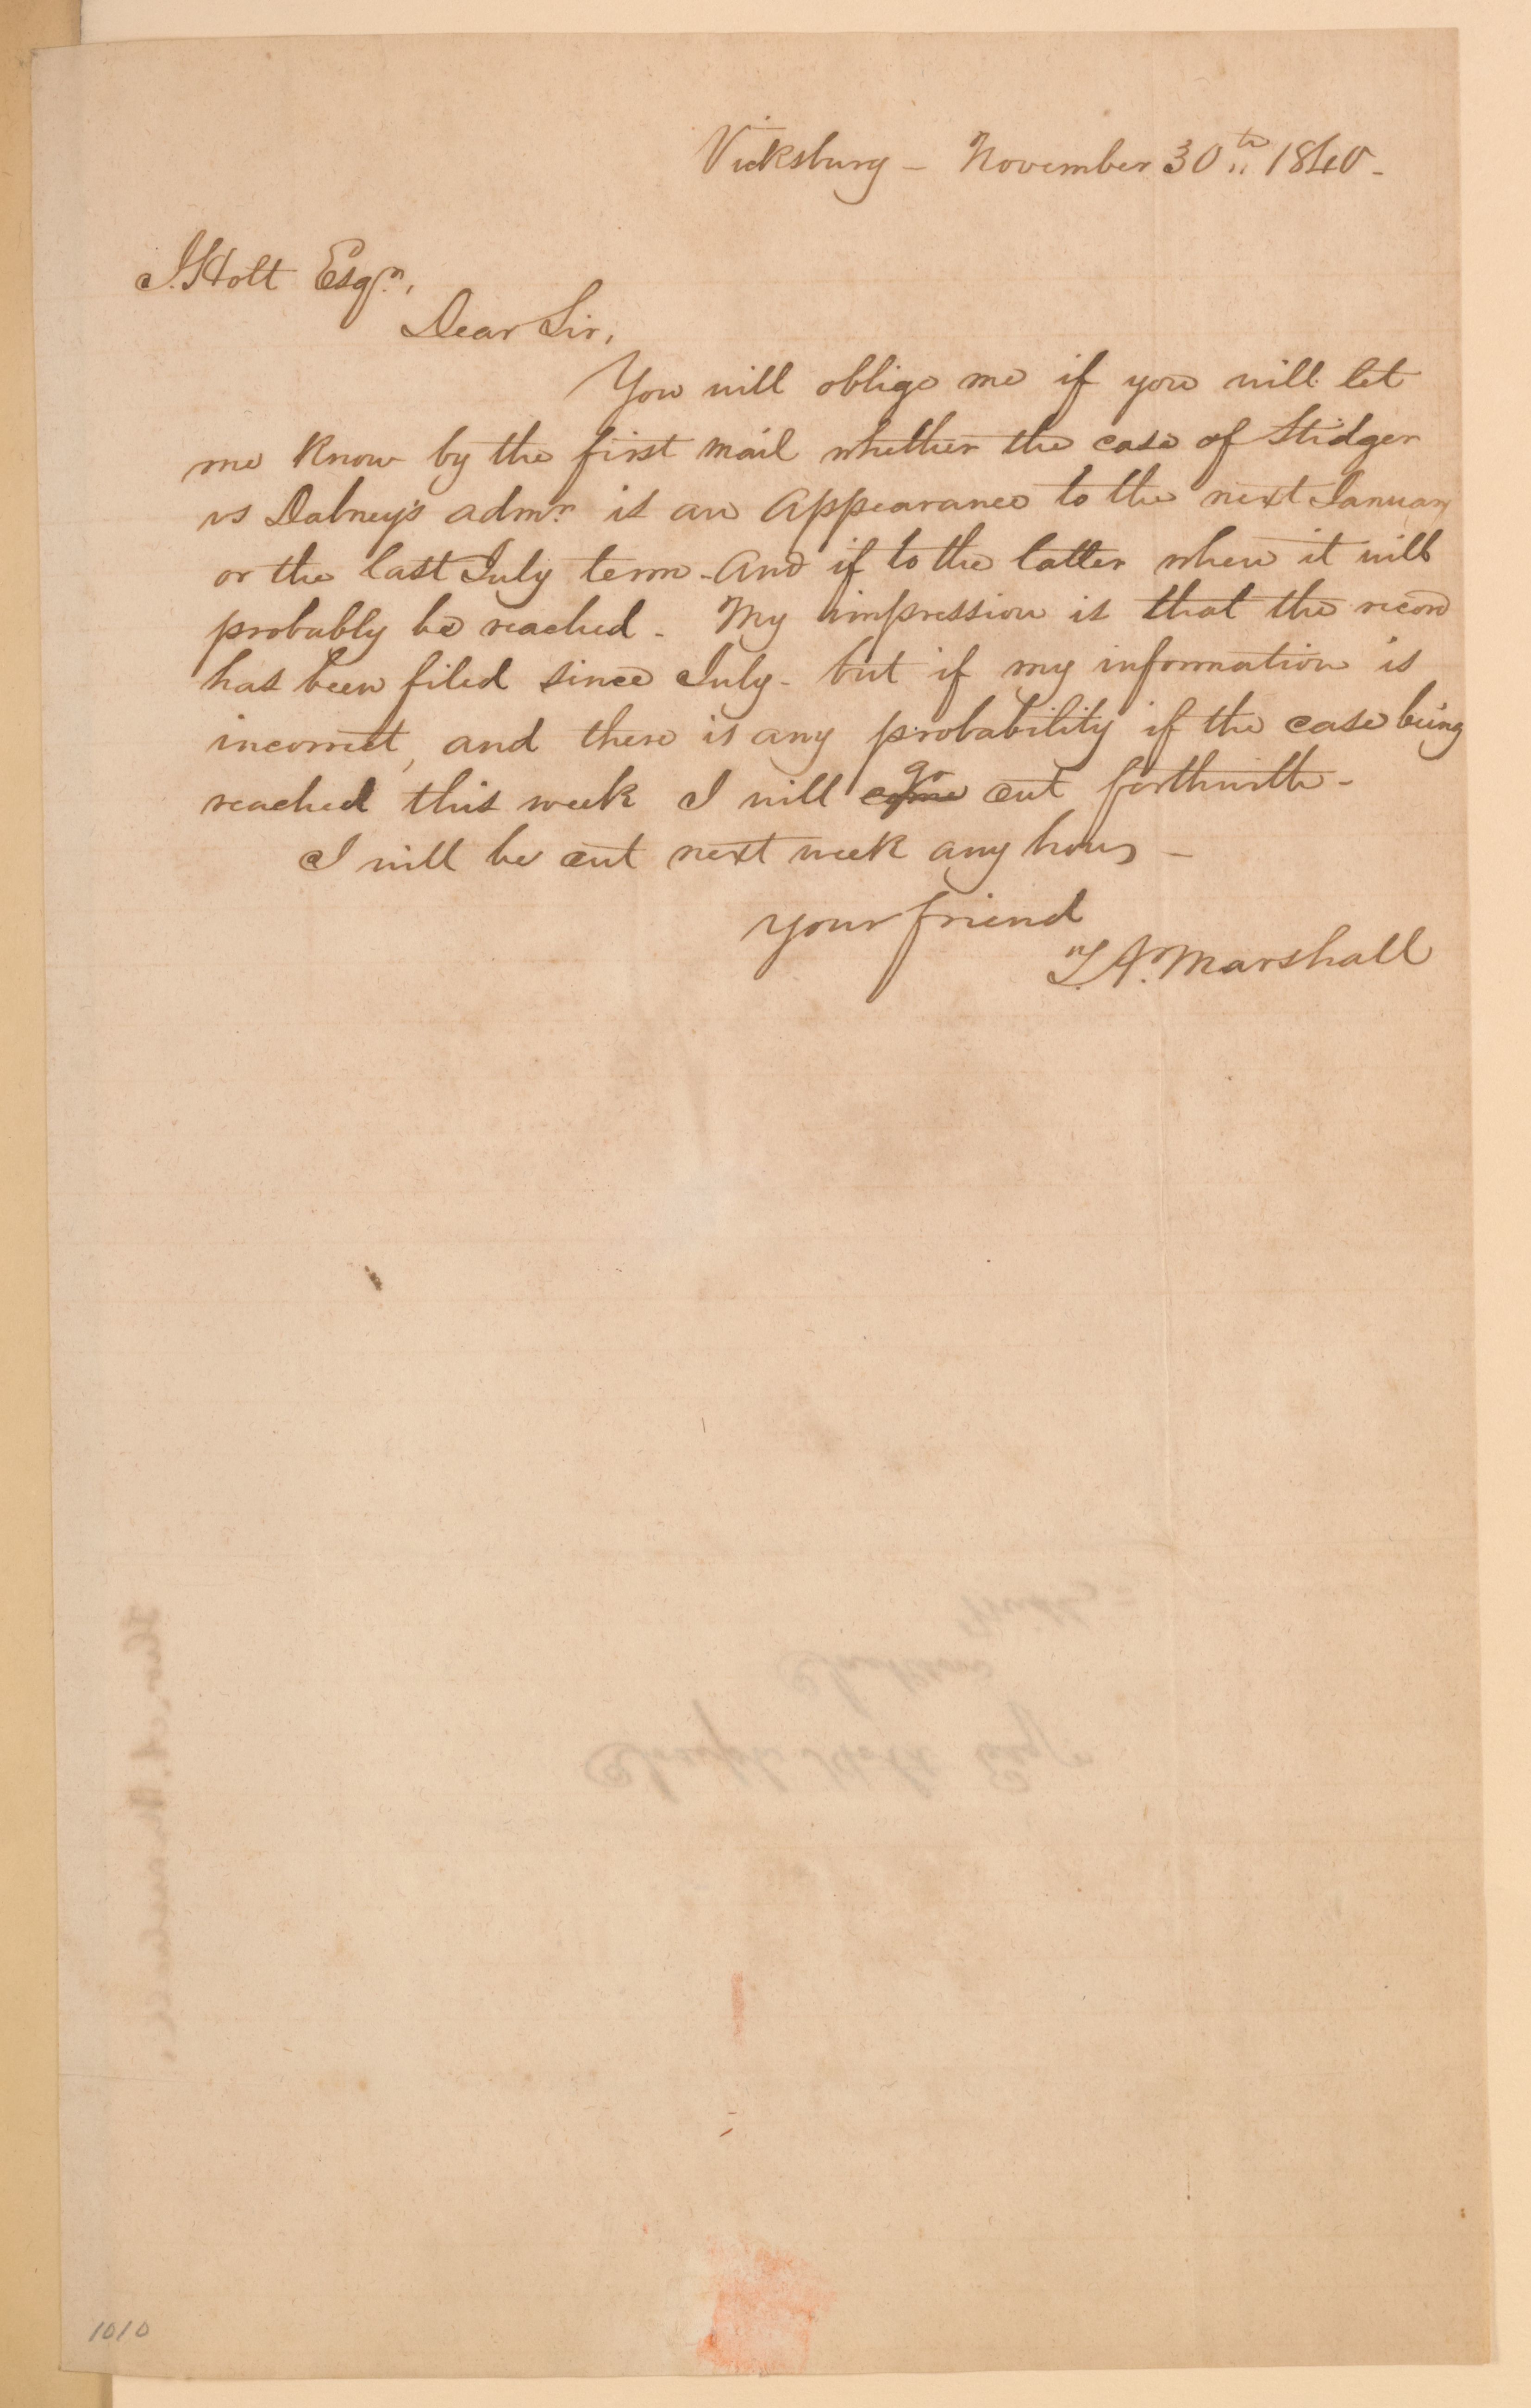 Vicksburg - November 30th 1840 -
J. Holt Esqr,
Dear Sir,
You will oblige me if you will let
me know by the first mail whether the case of Stidger
vs Dabney's admr is an appearance to the next January
or the last July term - And if to the latter when it will
probably be reached - My impression is that the record
has been filed since July - but if my information is
incorrect, and there is any probability if the case being
reached this week I will come go out forthwith -
I will be out next week any how -
your friend
T. A. Marshall
Joseph Holt Esqr
Jackson
1010